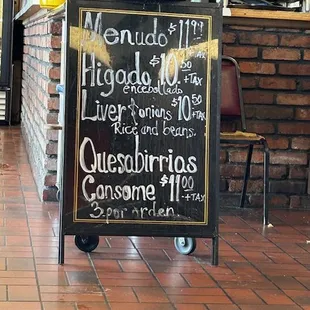 Menudo $11.99 +TAX
Higado $10.50 +TAX
encebollado
Liver & onions $10.50 +TAX
Rice and beans.
Quesabirrias
Consome $11.00 +TAX
3 por orden